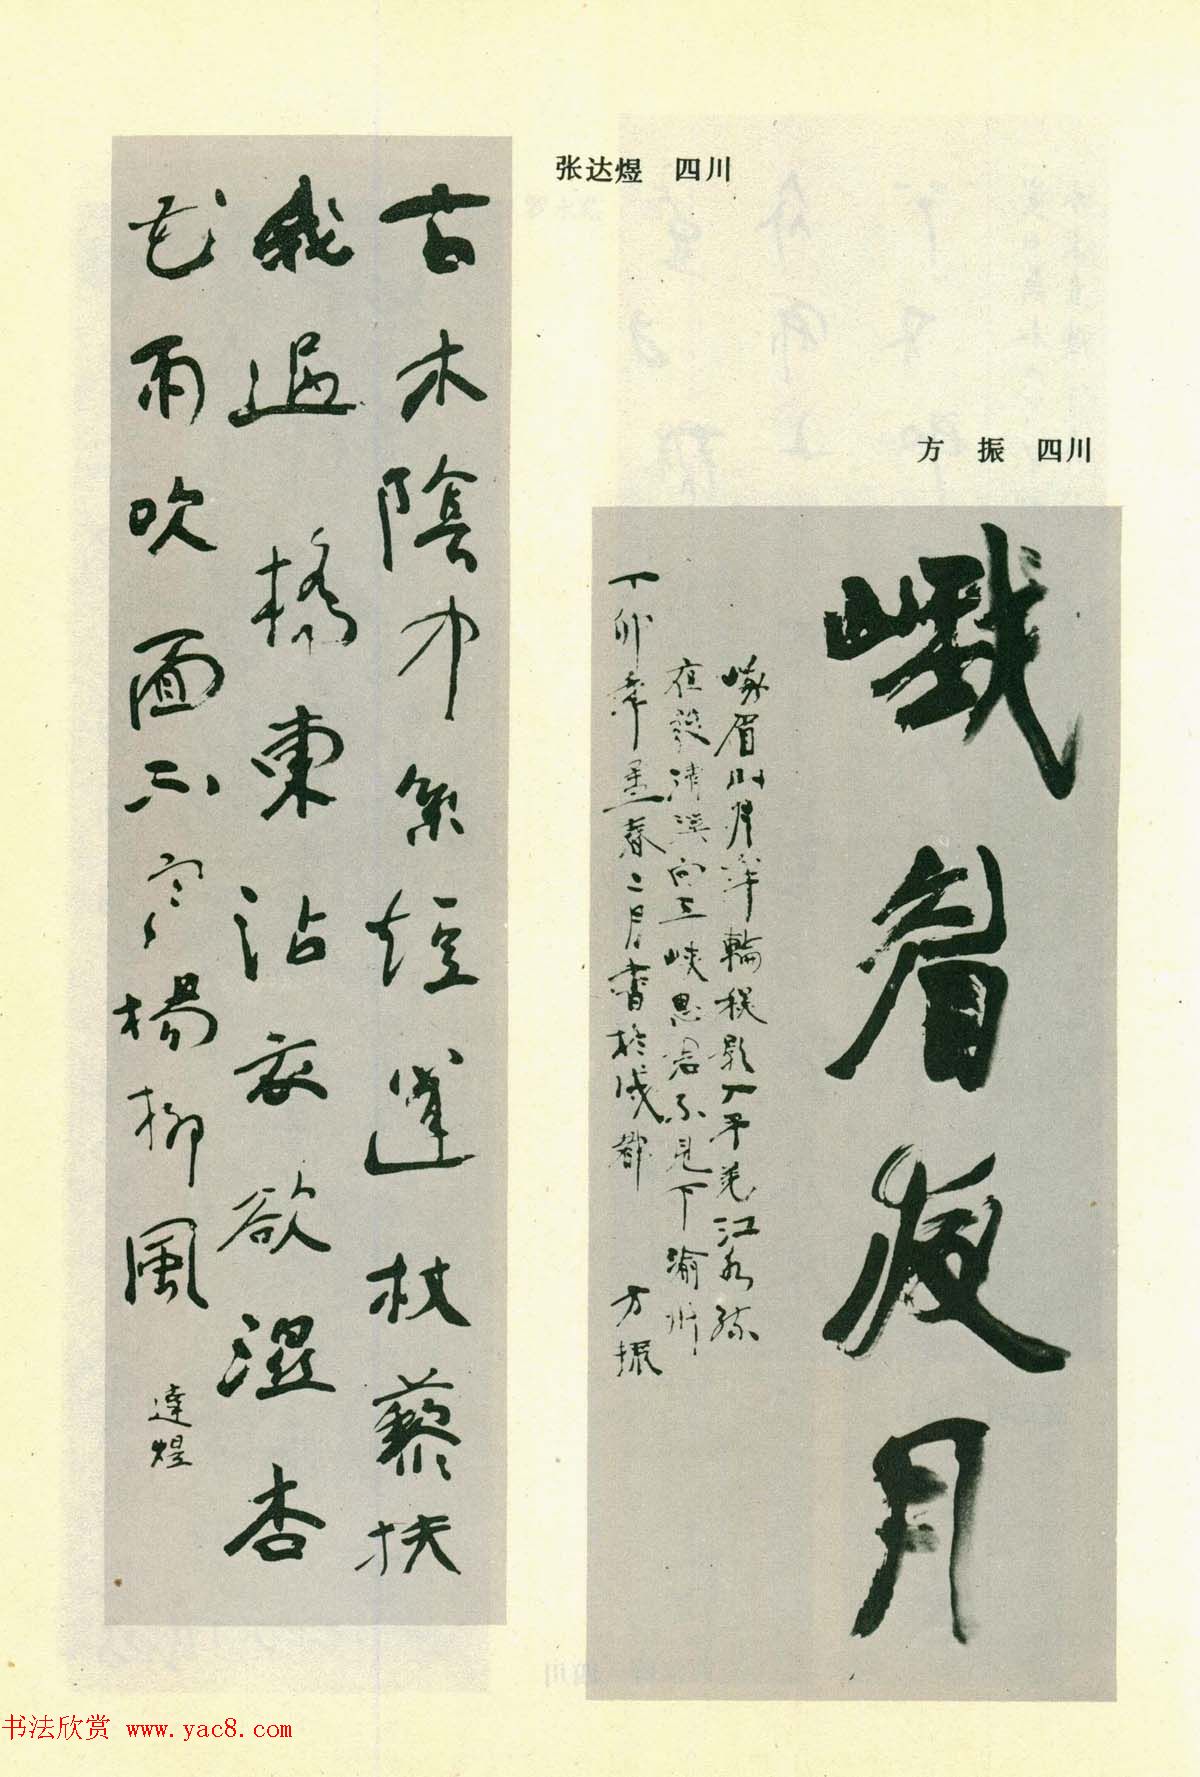 张达煜 四川
古木陰中系短篷杖藜扶
我過橋東沾衣欲濕杏
花雨吹面不寒楊柳風
達煜
方 振 四川
峨眉夜月
峨眉山月半輪秋影入平羌江水流
夜發清溪向三峽思君不見下渝州
丁卯年孟春二月書於成都 方振
书法欣赏 www.yac8.com